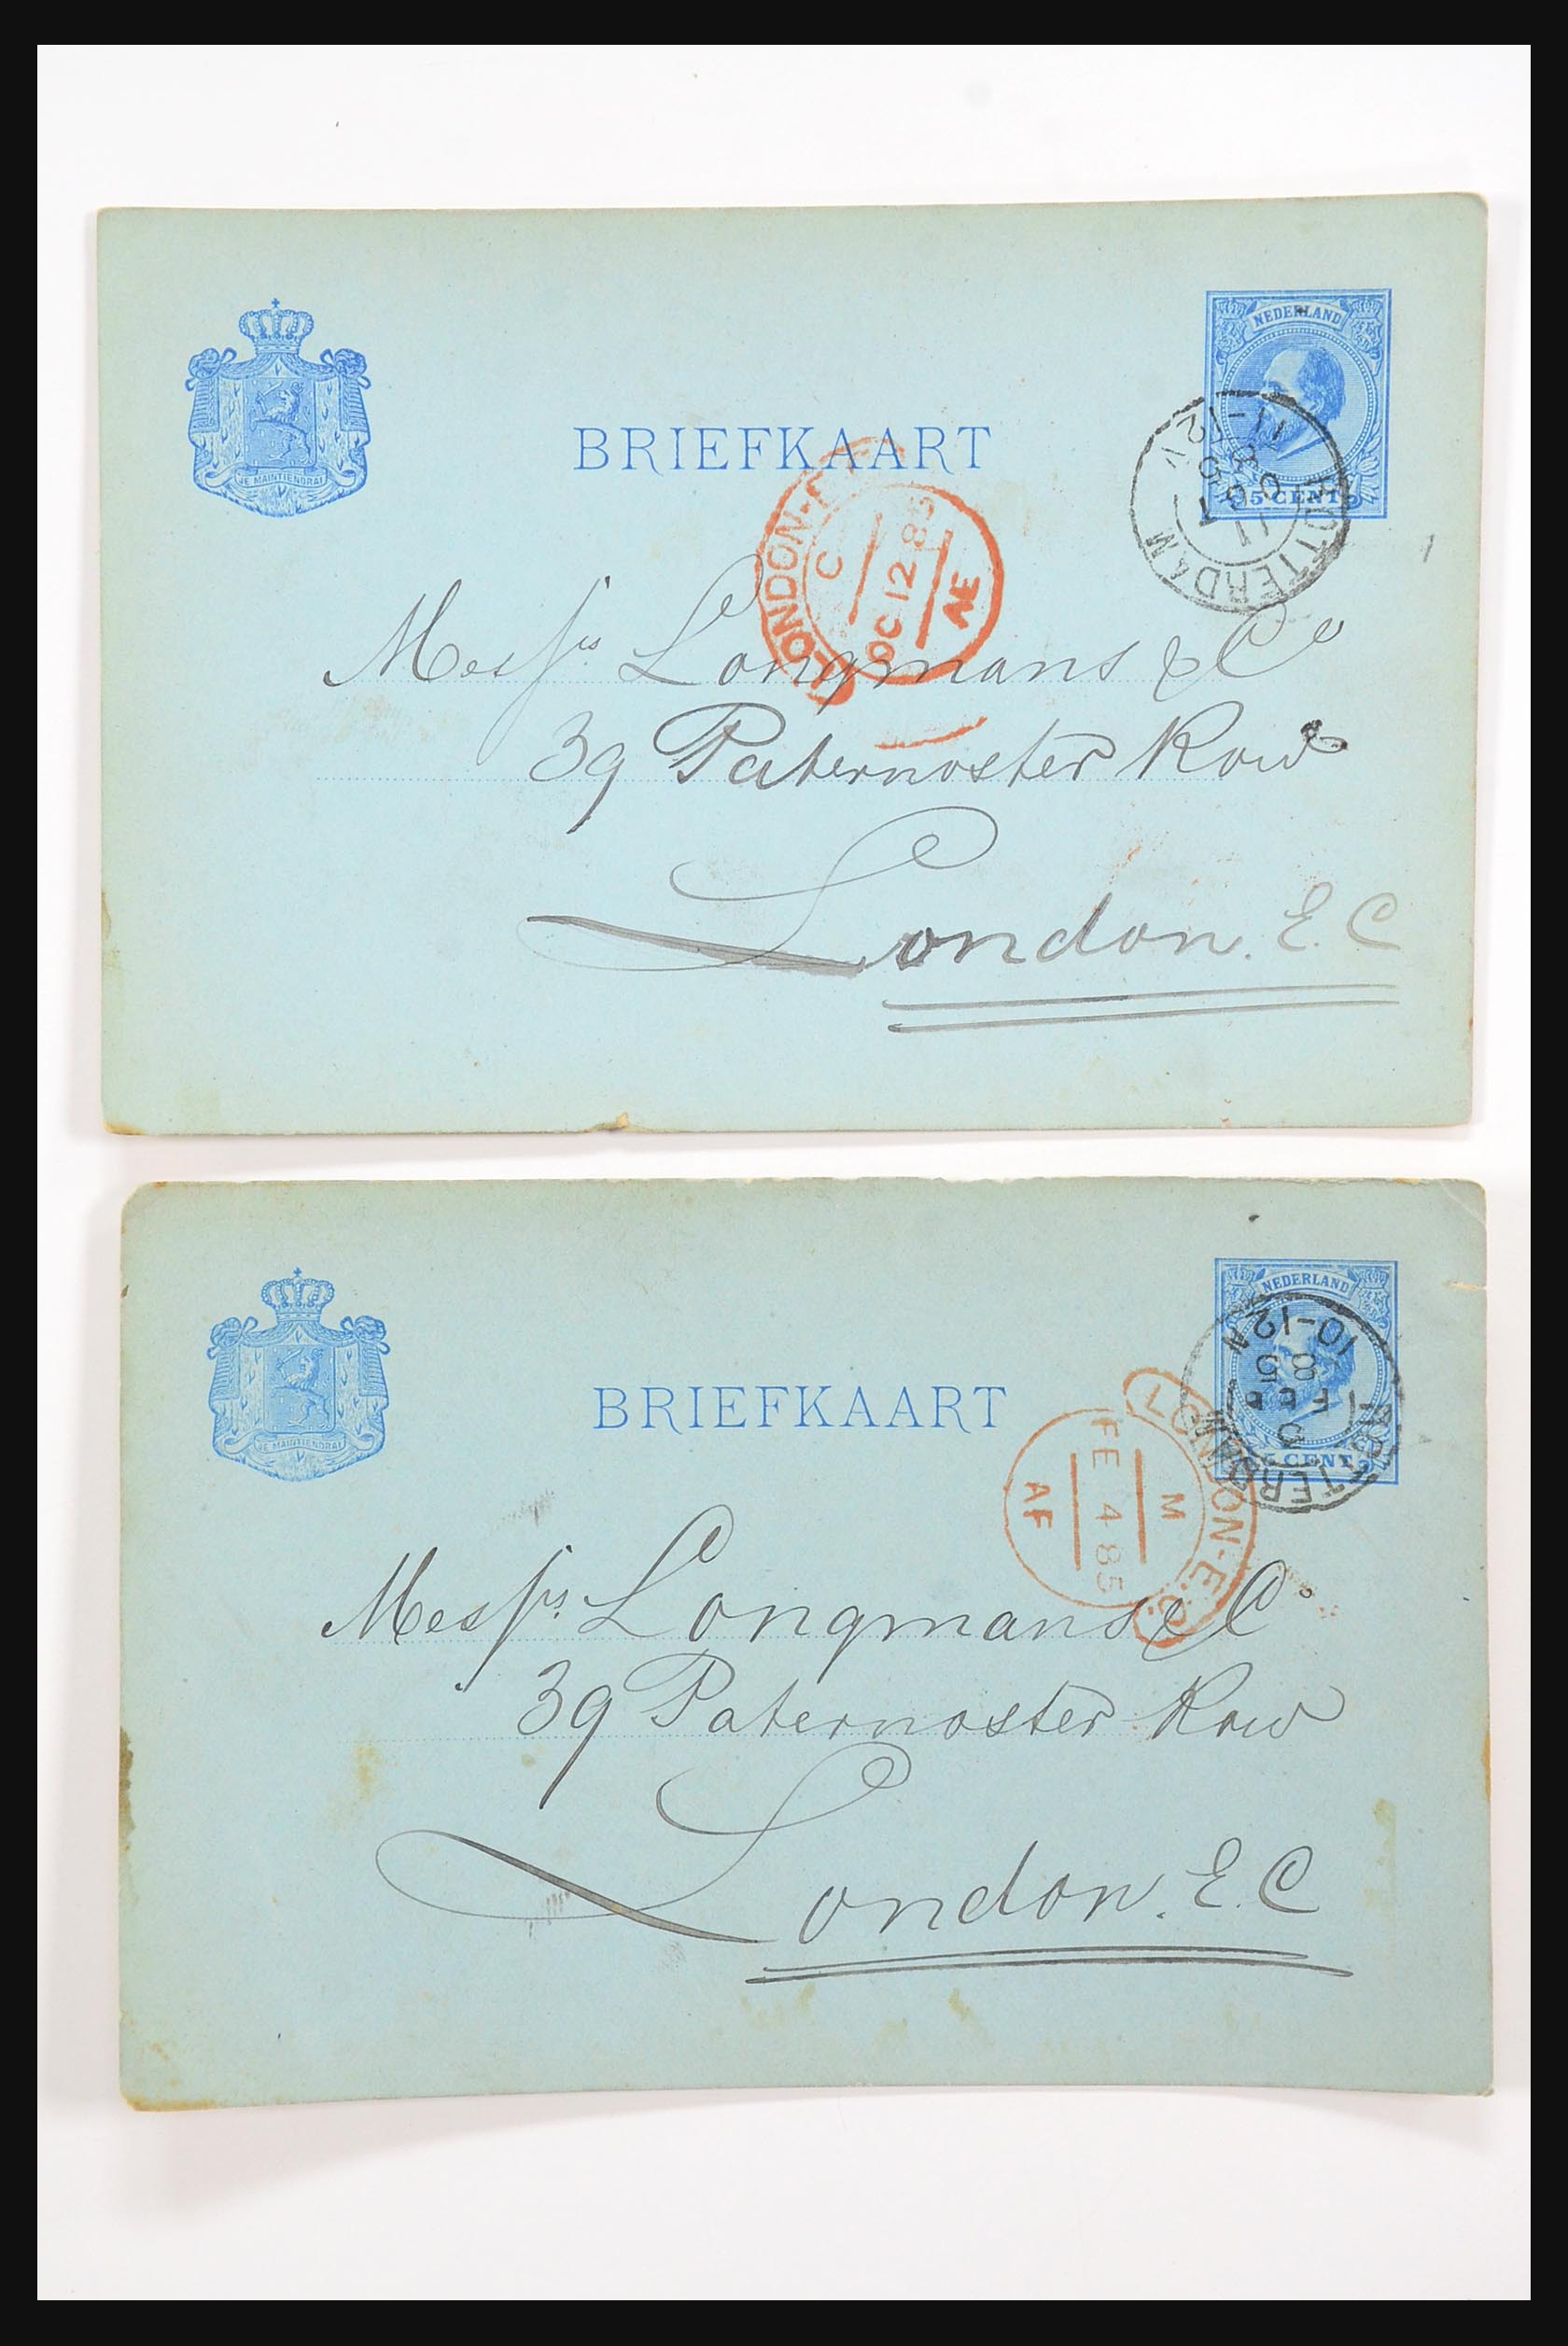 JE MAINTIENDRAI
BRIEFKAART
NEDERLAND
5 CENT
ROTTERDAM
11 OCT
85
11-12V
LONDON-
C
OC 12 85
AE
Messrs Longmans & Co
39 Paternoster Row
London. E.C
JE MAINTIENDRAI
BRIEFKAART
NEDERLAND
5 CENT
ROTTERDAM
3 FEB
85
10-12N
LONDON-E.C.
M
FE 4 85
AF
Messrs. Longmans & Co
39 Paternoster Row
London. E.C